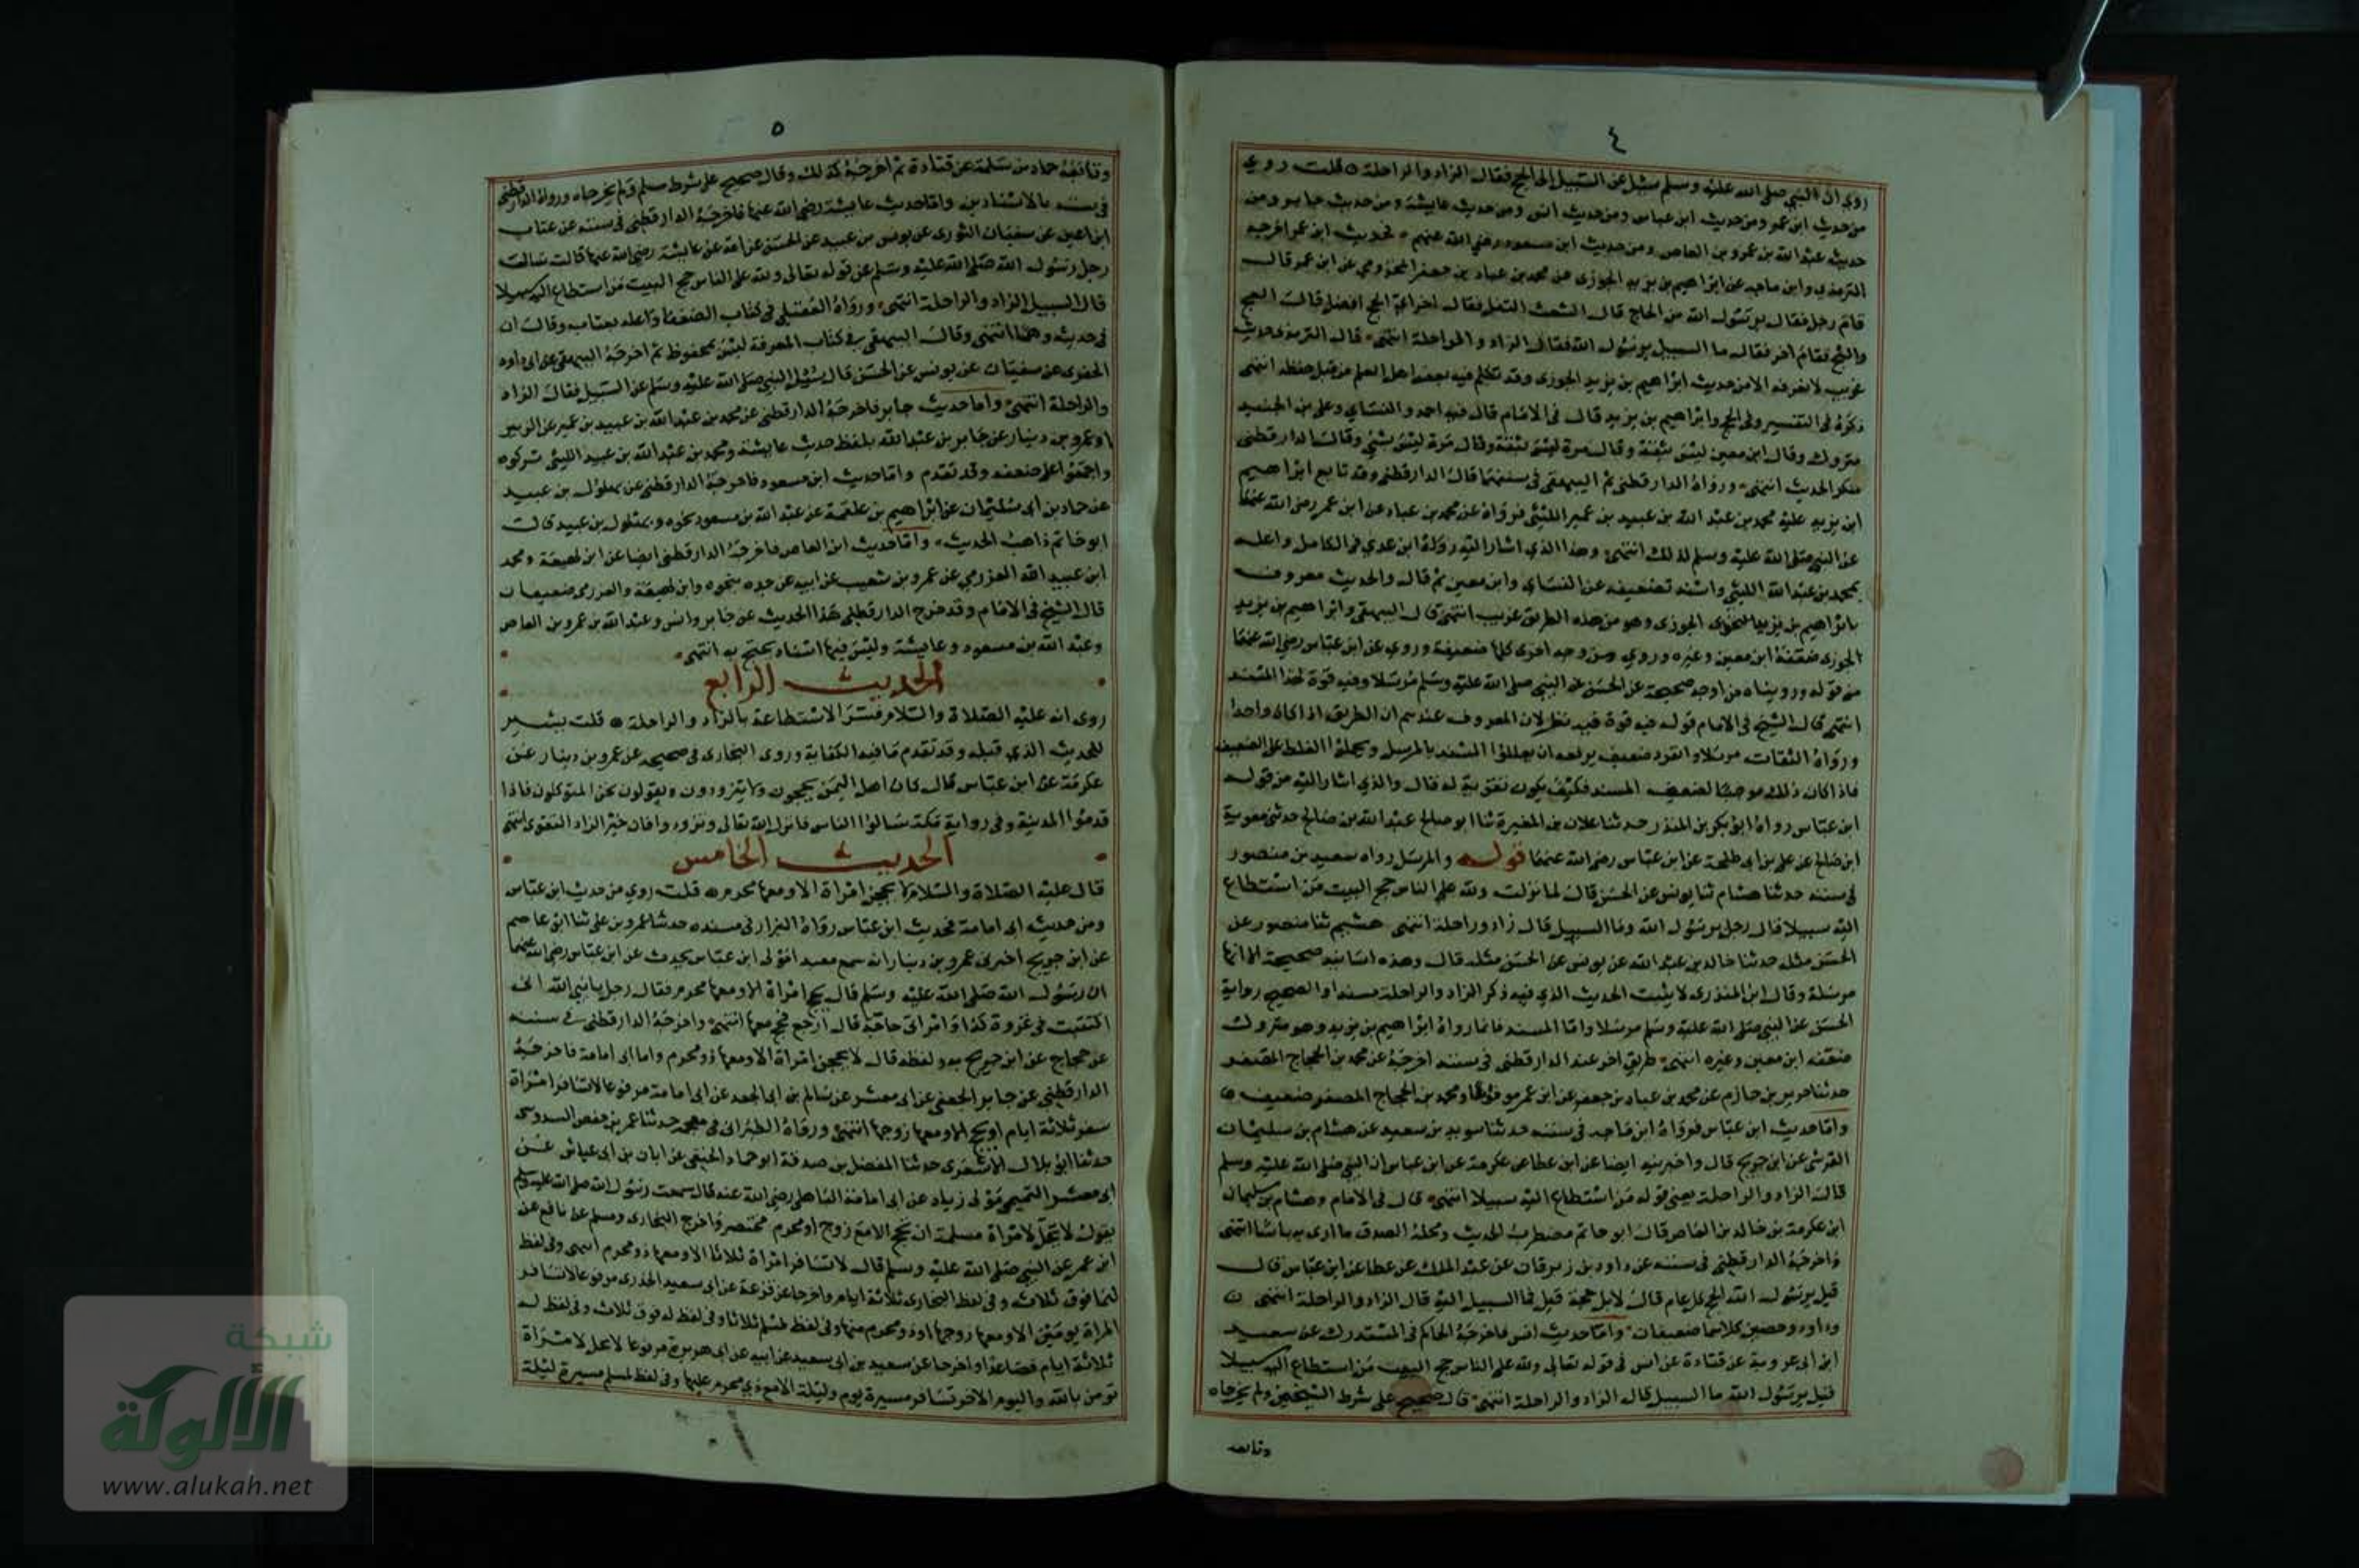 ٤
روي ان النبي صلى الله عليه وسلم سئل عن السبيل الى الحج فقال الزاد والراحلة ٥ قلت روي
من حديث ابن عمر ومن حديث ابن عباس ومن حديث انس ومن حديث عايشة ومن حديث جابر ومن
حديث عبد الله بن عمرو بن العاص ومن حديث ابن مسعود رضي الله عنهم فحديث ابن عمر اخرجه
الترمذي وابن ماجه عن ابراهيم بن يزيد الجوزى عن محمد بن عباد بن جعفر المخزومي عن ابن عمر قال
قام رجل فقال يرسول الله من الحاج قال الشعث التفل فقال اخر اي الحج افضل قال العج
والثج فقام اخر فقال ما السبيل يرسول الله فقال الزاد والراحلة انتهى قال الترمذى حديث
غريب لا نعرفه الا من حديث ابراهيم بن يزيد الجوزى وقد تكلم فيه بعض اهل العلم من قبل حفظه انتهى
ذكره في التفسير وفي الحج وابراهيم بن يزيد قال في الامام قال فيه احمد والنساي وعلي بن الجنيد
متروك وقال ابن معين ليس بثقة وقال مرة ليس بثقة وقال مرة ليس بشي وقال الدارقطني
منكر الحديث انتهى ورواه الدارقطني ثم البيهقي في سننهما قال الدارقطني وقد تابع ابراهيم
ابن يزيد عليه محمد بن عبد الله بن عبيد بن عمير الليثي فرواه عن محمد بن عباد عن ابن عمر رضي الله عنهما
عن النبي صلى الله عليه وسلم لذلك انتهى وهذا الذي اشار اليه رواه ابن عدي في الكامل واعله
بمحمد بن عبد الله الليثي واسند تضعيفه عن النساي وابن معين ثم قال والحديث معروف
بابراهيم بن يزيد الجوزى وهو من هذه الطريق غريب انتهى قال البيهقي وابراهيم بن يزيد
الجوزى ضعفه ابن معين وغيره وروي من وجه اخرى كلها ضعيفة وروي عن ابن عباس رضي الله عنهما
من قوله وروياناه من اوجه صحيحة عن الحسن عن النبي صلى الله عليه وسلم مرسلا وفيه قوة لهذا المسند
انتهى قال الشيخ في الامام قوله فيه قوة فيه نظر لان المعروف عندهم ان الطريق اذا كان واحدا
ورواه الثقات مرسلا وانفرد ضعيف برفعه ان يعللوا المسند بالمرسل ويحملوا الغلط على الضعيف
فاذا كان ذلك موجبا لضعف المسند فكيف يكون تقوية له قال والذي اشار اليه من قول
ابن عباس رواه ابو بكر بن المنذر حدثنا علان بن المغيرة ثنا ابو صالح عبد الله بن صالح حدثني معوية
ابن صالح عن علي بن ابي طلحة عن ابن عباس رضي الله عنهما قوله والمرسل رواه سعيد بن منصور
في سننه حدثنا هشام ثنا يونس عن الحسن قال لما نزلت ولله على الناس حج البيت من استطاع
اليه سبيلا قال رجل يرسول الله وما السبيل قال زاد وراحلة انتهى هشيم ثنا منصور عن
الحسن مثله حدثنا خالد بن عبد الله عن يونس عن الحسن مثله قال وهذه اسانيد صحيحة الا انها
مرسلة وقال ابن المنذرى لا يثبت الحديث الذي فيه ذكر الزاد والراحلة مسندا والصحيح رواية
الحسن عن النبي صلى الله عليه وسلم مرسلا واما المسند فانما رواه ابراهيم بن يزيد وهو متروك
ضعفه ابن معين وغيره انتهى طريق اخر عند الدارقطني في سننه اخرجه عن محمد بن الحجاج المصفر
حدثنا جرير بن حازم عن محمد بن عباد بن جعفر عن ابن عمر مرفوعا ومحمد بن الحجاج المصفر ضعيف
واما حديث ابن عباس فرواه ابن ماجه في سننه حدثنا سويد بن سعيد عن هشام بن سليمان
القرشي عن ابن جريج قال واخبرنيه ايضا عن ابن عطا عن عكرمة عن ابن عباس ان النبي صلى الله عليه وسلم
قال الزاد والراحلة يعني قوله من استطاع اليه سبيلا انتهى قال في الامام وهشام بن سليمان
ابن عكرمة بن خالد بن العاص قال ابو حاتم مضطرب الحديث ومحله الصدق ما ارى به باسا انتهى
واخرجه الدارقطني في سننه عن داود بن زبرقان عن عبد الملك عن عطا عن ابن عباس قال
قيل يرسول الله الحج كل عام قال لا بل حجة قيل فما السبيل اليه قال الزاد والراحلة انتهى
وداود وحصين كلاهما ضعيفان واما حديث انس فاخرجه الحاكم في المستدرك عن سعيد
ابن ابي عروبة عن قتادة عن انس في قوله تعالى ولله على الناس حج البيت من استطاع اليه سبيلا
قيل يرسول الله ما السبيل قال الزاد والراحلة انتهى قال صحيح على شرط الشيخين ولم يخرجاه
وتابعه
٥
وتابعه حماد بن سلمة عن قتادة ثم اخرجه كذلك وقال صحيح على شرط مسلم ولم يخرجاه ورواه الدارقطني
في سننه بالاسنادين واما حديث عايشة رضي الله عنها فاخرجه الدارقطني في سننه عن عتاب
ابن اعين عن سفيان الثورى عن يونس بن عبيد عن الحسن عن امه عن عايشة رضي الله عنها قالت سالت
رجل رسول الله صلى الله عليه وسلم عن قوله تعالى ولله على الناس حج البيت من استطاع اليه سبيلا
قال السبيل الزاد والراحلة انتهى ورواه العقيلي في كتاب الضعفا واعله بعتاب وقال ان
في حديثه وهما انتهى وقال البيهقي في كتاب المعرفة ليس بمحفوظ ثم اخرجه البيهقي عن ابي داود
الحفرى عن سفيان عن يونس عن الحسن قال سئل النبي صلى الله عليه وسلم عن السبيل فقال الزاد
والراحلة انتهى واما حديث جابر فاخرجه الدارقطني عن محمد بن عبد الله بن عبيد بن عمير عن ابي الزبير
او عمرو بن دينار عن جابر بن عبد الله بلفظ حديث عايشة ومحمد بن عبد الله بن عبيد الليثي تركوه
واجمعوا على ضعفه وقد تقدم واما حديث ابن مسعود فاخرجه الدارقطني عن بهلول بن عبيد
عن حماد بن ابي سليمان عن ابراهيم بن علقمة عن عبد الله بن مسعود نحوه وبهلول بن عبيد قال
ابو حاتم ذاهب الحديث واما حديث ابن العاص فاخرجه الدارقطني ايضا عن ابن لهيعة ومحمد
ابن عبيد الله العزرمي عن عمرو بن شعيب عن ابيه عن جده بنحوه وابن لهيعة والعزرمي ضعيفان
قال الشيخ في الامام وقد خرج الدارقطني هذا الحديث عن جابر وانس وعبد الله بن عمرو بن العاص
وعبد الله بن مسعود وعايشة وليس فيها اسناد يحتج به انتهى
الحديث الرابع
روى انه عليه الصلاة والسلام فسر الاستطاعة بالزاد والراحلة ٥ قلت يشير
للحديث الذي قبله وقد تقدم ما فيه الكفاية وروى البخارى في صحيحه عن عمرو بن دينار عن
عكرمة عن ابن عباس قال كان اهل اليمن يحجون ولا يتزودون ويقولون نحن المتوكلون فاذا
قدموا المدينة وفي رواية مكة سالوا الناس فانزل الله تعالى وتزودوا فان خير الزاد التقوى انتهى
الحديث الخامس
قال عليه الصلاة والسلام لا تحجن امراة الا ومعها محرم ٥ قلت روي من حديث ابن عباس
ومن حديث ابي امامة فحديث ابن عباس رواه البزار في مسنده حدثنا عمرو بن علي ثنا ابو عاصم
عن ابن جريج اخبرني عمرو بن دينار انه سمع معبد امولى ابن عباس يحدث عن ابن عباس رضي الله عنهما
ان رسول الله صلى الله عليه وسلم قال لا تحج امراة الا ومعها محرم فقال رجل يا نبي الله اني
اكتتبت في غزوة كذا وامراتي حاجة قال ارجع فحج معها انتهى واخرجه الدارقطني في سننه
عن حجاج عن ابن جريج به ولفظه قال لا تحجن امراة الا ومعها ذو محرم واما ابي امامة فاخرجه
الدارقطني عن جابر الجعفي عن ابي معشر عن سالم بن ابي الجعد عن ابي امامة مرفوعا لا تسافر امراة
سفر ثلاثة ايام او تحج الا ومعها زوجها انتهى ورواه الطبراني في معجمه حدثنا عمر بن حفص السدوسي
حدثنا ابو بلال الاشعرى حدثنا المفضل بن صدقة ابو حماد الحنفي عن ابان بن ابي عياش عن
ابي معشر التميمي مولى زياد عن ابي امامة الباهلي رضي الله عنه قال سمعت رسول الله صلى الله عليه وسلم
يقول لا يحل لامراة مسلمة ان تحج الا مع زوج او محرم مختصر واخرج البخارى ومسلم عن نافع عن
ابن عمر عن النبي صلى الله عليه وسلم قال لا تسافر امراة ثلاثا الا ومعها ذو محرم انتهى وفي لفظ
لهما فوق ثلاث وفي لفظ البخارى ثلاثة ايام واخرجا عن قزعة عن ابي سعيد الخدرى مرفوعا لا تسافر
المراة يومين الا ومعها زوجها او ذو محرم منها وفي لفظ لمسلم ثلاثا وفي لفظ له فوق ثلاث وفي لفظ له
ثلاثة ايام فصاعدا واخرجا عن سعيد بن ابي سعيد عن ابيه عن ابي هريرة مرفوعا لا يحل لامراة
تومن بالله واليوم الاخر تسافر مسيرة يوم وليلة الا مع ذي محرم عليها وفي لفظ لمسلم مسيرة ليلة
شبكة
الألوكة
www.alukah.net